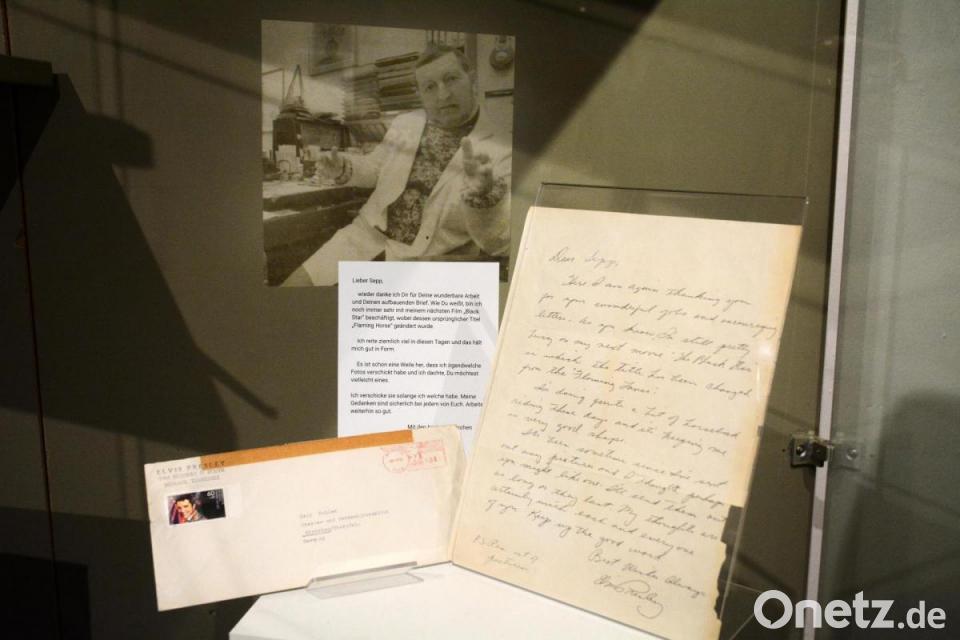 Lieber Sepp,
wieder danke ich Dir für Deine wunderbare Arbeit
und Deinen aufbauenden Brief. Wie Du weißt, bin ich
noch immer sehr mit meinem nächsten Film „Black
Star" beschäftigt, wobei dessen ursprünglicher Titel
„Flaming Horse" geändert wurde.
Ich reite ziemlich viel in diesen Tagen und das hält
mich gut in Form.
Es ist schon eine Weile her, dass ich irgendwelche
Fotos verschickt habe und ich dachte, Du möchtest
vielleicht eines.
Ich verschicke sie solange ich welche habe. Meine
Gedanken sind sicherlich bei jedem von Euch. Arbeite
weiterhin so gut.
Mit den
Dear Sepp,
Here I am again thanking you
for your wonderful jobs and encouraging
letter. As you know I'm still pretty
busy on my next movie "The Black Star"
in which the title has been changed
from the "Flaming
I'm doing quite a lot of horseback
riding these days and it's keeping me
in very good shape.
It's been sometime since I've sent
out any pictures and I thought perhaps
you might like one. I'll send them out
as long as they last. My thoughts are
certainly with each and every one
of you. Keep up the good work.
Best Wishes Always
Elvis Presley
ELVIS PRESLEY
MEMPHIS, TENNESSEE
60
Germany
Onetz.de